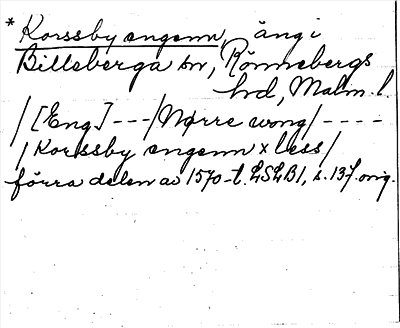 * Korssby engenn, äng i
Billeberga sn, Rönnebergs
hd, Malm. l.
/[Eng] ---/Nørre wong/----
/Korssby engenn x less/
förra delen av 1570-t. LSLB1, s. 137. orig.